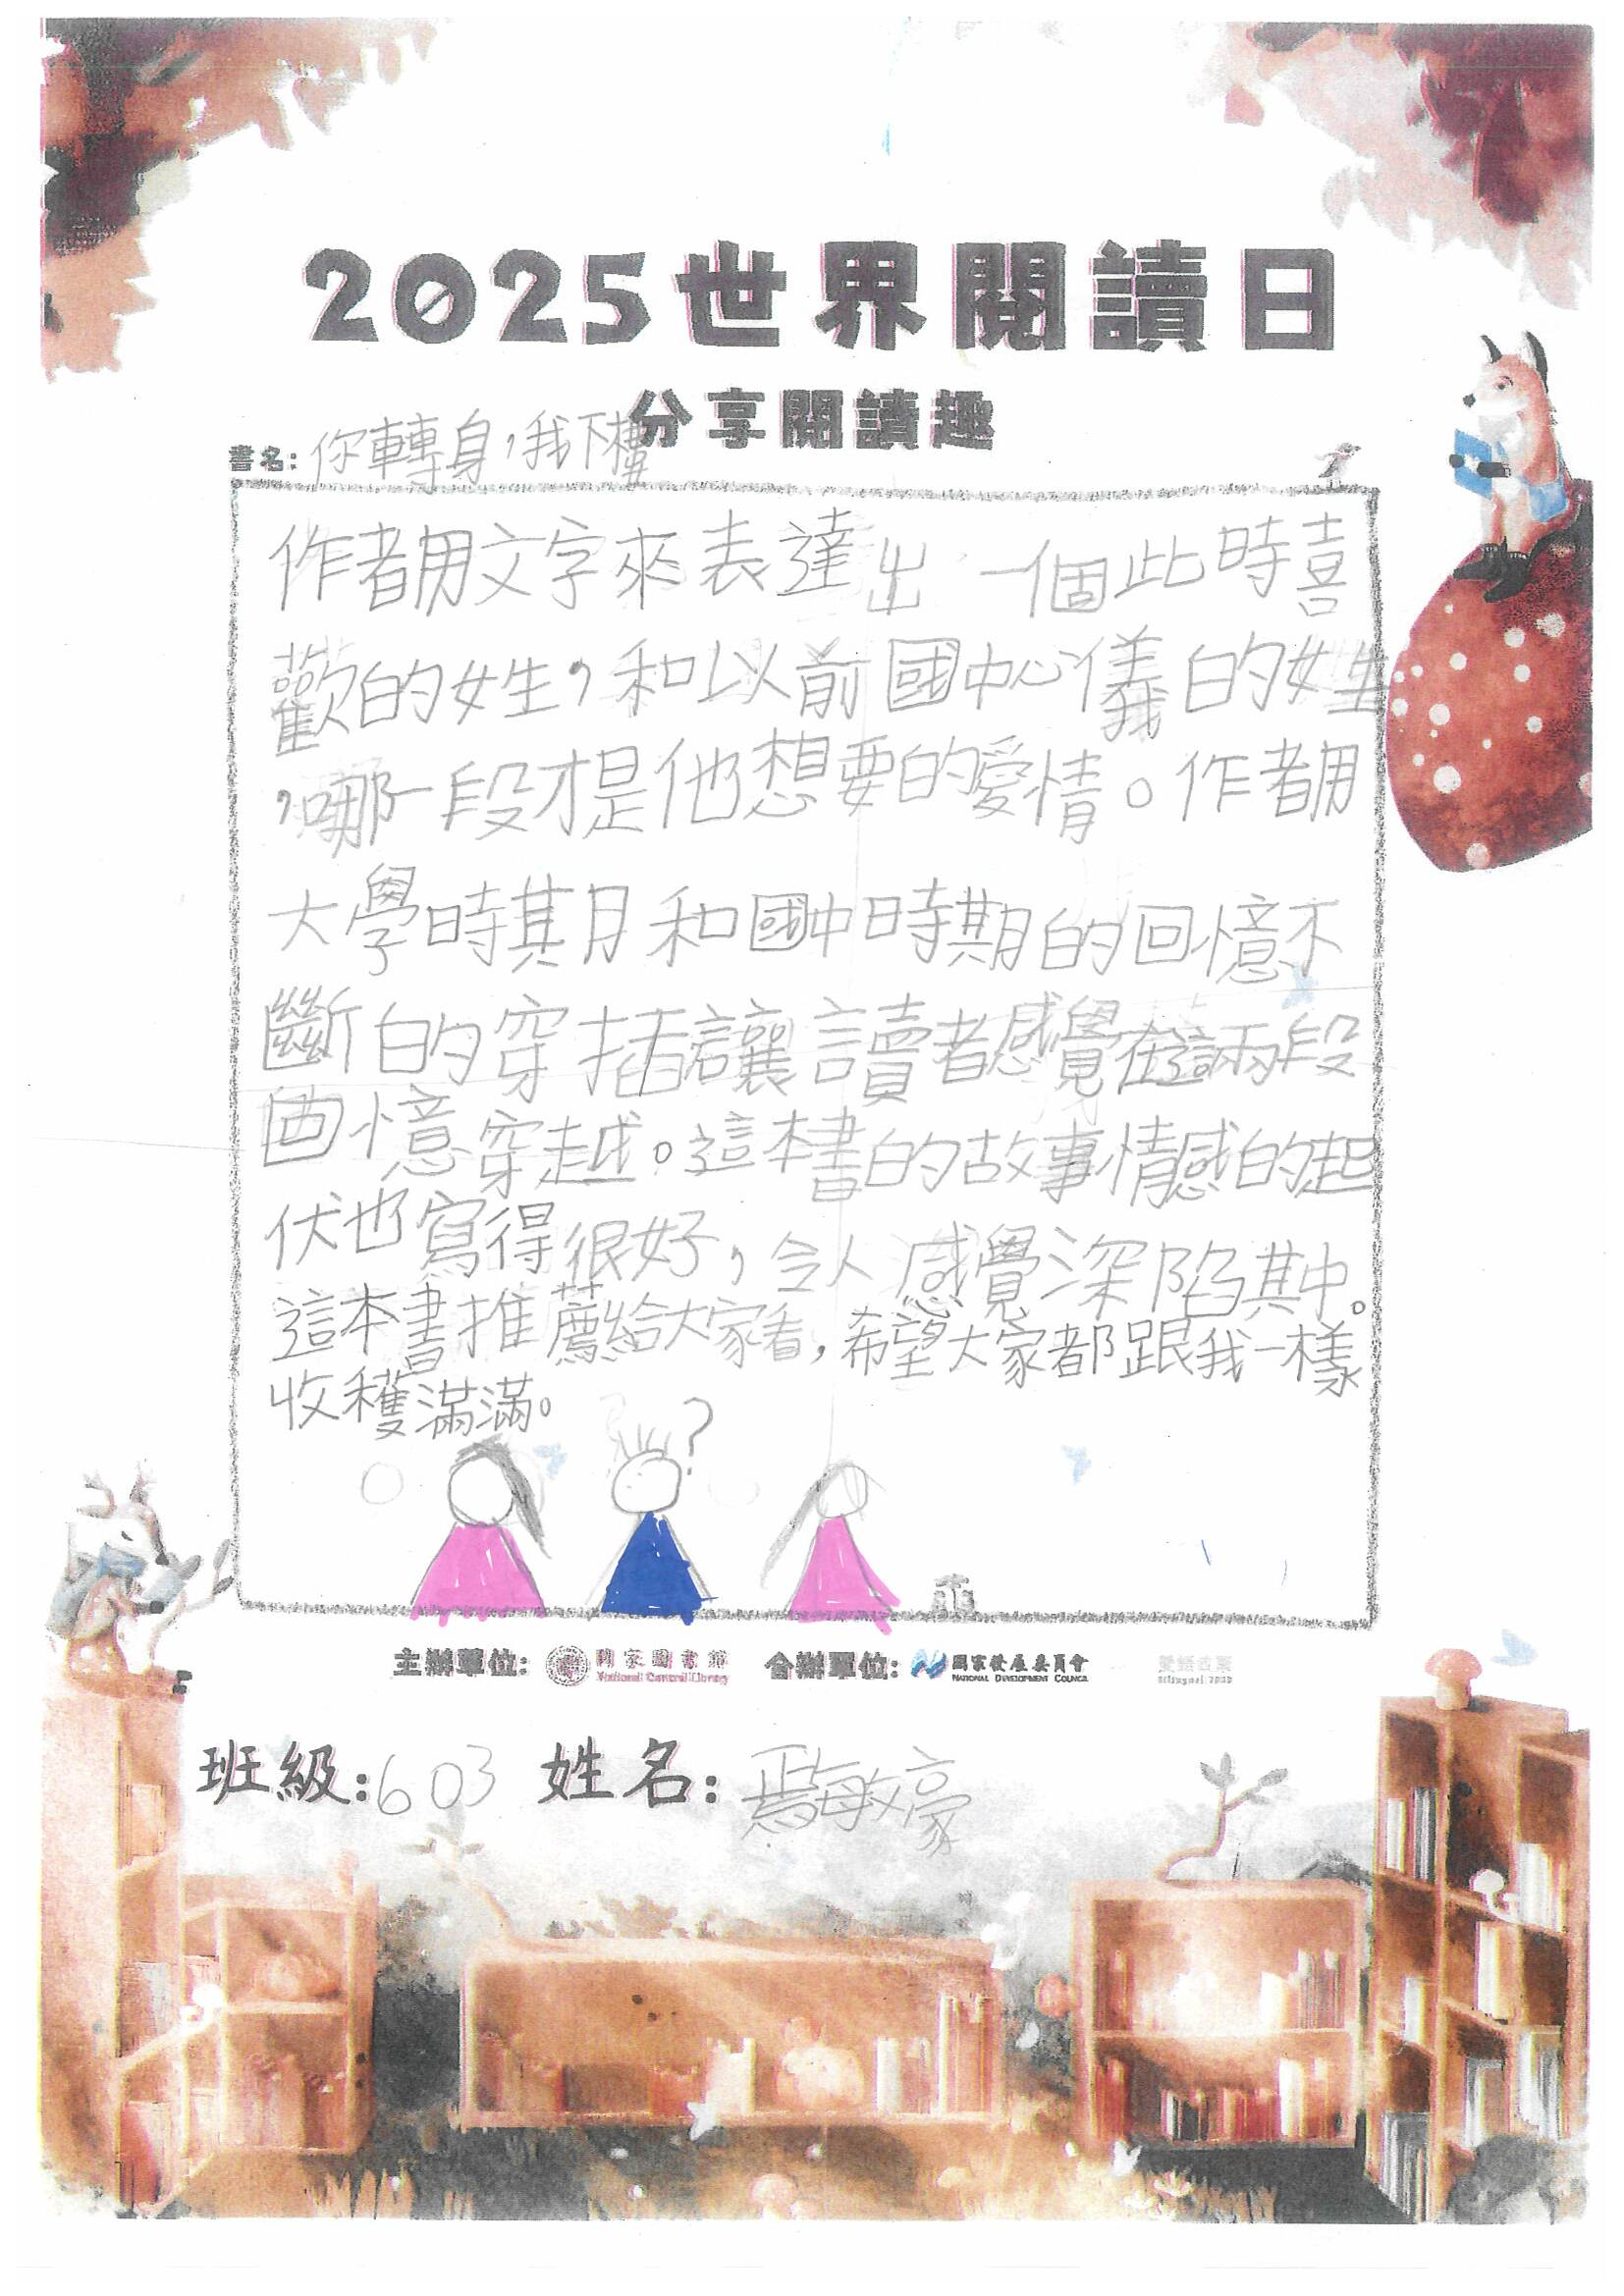 2025世界閱讀日
分享閱讀趣
書名:你轉身,我下樓
作者用文字來表達出一個此時喜
歡的女生,和以前國中心儀的女生
,哪一段才是他想要的愛情。作者用
大學時期和國中時期的回憶不
斷的穿插讓讀者感覺在這兩段
回憶穿越。這本書的故事情感的起
伏也寫得很好,令人感覺深陷其中。
這本書推薦給大家看,希望大家都跟我一樣
收穫滿滿。
?
主辦單位: 國家圖書館 National Central Library 合辦單位: 國家發展委員會 NATIONAL DEVELOPMENT COUNCIL
班級:603 姓名:敏豪